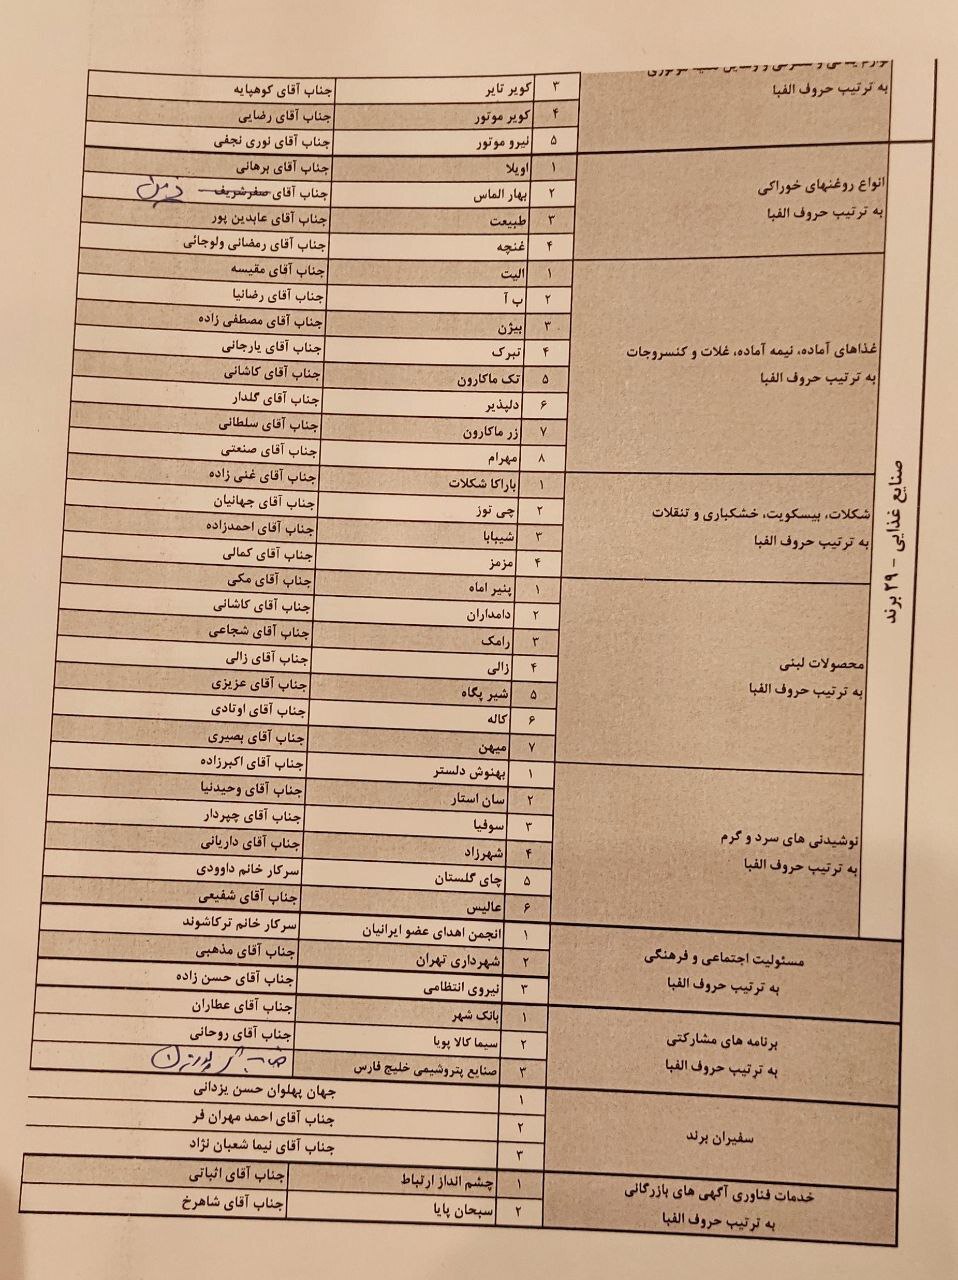 به ترتیب حروف الفبا
۳ کویر تایر جناب آقای کوهپایه
۴ کویر موتور جناب آقای رضایی
۵ نیرو موتور جناب آقای نوری نجفی
صنایع غذایی - ۲۹ برند
انواع روغنهای خوراکی
به ترتیب حروف الفبا
۱ اویلا جناب آقای برهانی
۲ بهار الماس جناب آقای صفرشریف
۳ طبیعت جناب آقای عابدین پور
۴ غنچه جناب آقای رمضانی ولوجائی
غذاهای آماده، نیمه آماده، غلات و کنسروجات
به ترتیب حروف الفبا
۱ الیت جناب آقای مقیسه
۲ ب آ جناب آقای رضانیا
۳ بیژن جناب آقای مصطفی زاده
۴ تبرک جناب آقای یارجانی
۵ تک ماکارون جناب آقای کاشانی
۶ دلپذیر جناب آقای گلدار
۷ زر ماکارون جناب آقای سلطانی
۸ مهرام جناب آقای صنعتی
شکلات، بیسکویت، خشکباری و تنقلات
به ترتیب حروف الفبا
۱ باراکا شکلات جناب آقای غنی زاده
۲ چی توز جناب آقای جهانیان
۳ شیبابا جناب آقای احمدزاده
۴ مزمز جناب آقای کمالی
محصولات لبنی
به ترتیب حروف الفبا
۱ پنیر اماه جناب آقای مکی
۲ دامداران جناب آقای کاشانی
۳ رامک جناب آقای شجاعی
۴ زالی جناب آقای زالی
۵ شیر پگاه جناب آقای عزیزی
۶ کاله جناب آقای اوتادی
۷ میهن جناب آقای بصیری
نوشیدنی های سرد و گرم
به ترتیب حروف الفبا
۱ بهنوش دلستر جناب آقای اکبرزاده
۲ سان استار جناب آقای وحیدنیا
۳ سوفیا جناب آقای چپردار
۴ شهرزاد جناب آقای داریانی
۵ چای گلستان سرکار خانم داوودی
۶ عالیس جناب آقای شفیعی
مسئولیت اجتماعی و فرهنگی
به ترتیب حروف الفبا
۱ انجمن اهدای عضو ایرانیان سرکار خانم ترکاشوند
۲ شهرداری تهران جناب آقای مذهبی
۳ نیروی انتظامی جناب آقای حسن زاده
برنامه های مشارکتی
به ترتیب حروف الفبا
۱ بانک شهر جناب آقای عطاران
۲ سیما کالا پویا جناب آقای روحانی
۳ صنایع پتروشیمی خلیج فارس
سفیران برند
۱ جهان پهلوان حسن یزدانی
۲ جناب آقای احمد مهران فر
۳ جناب آقای نیما شعبان نژاد
خدمات فناوری آگهی های بازرگانی
به ترتیب حروف الفبا
۱ چشم انداز ارتباط جناب آقای اثباتی
۲ سبحان پایا جناب آقای شاهرخ